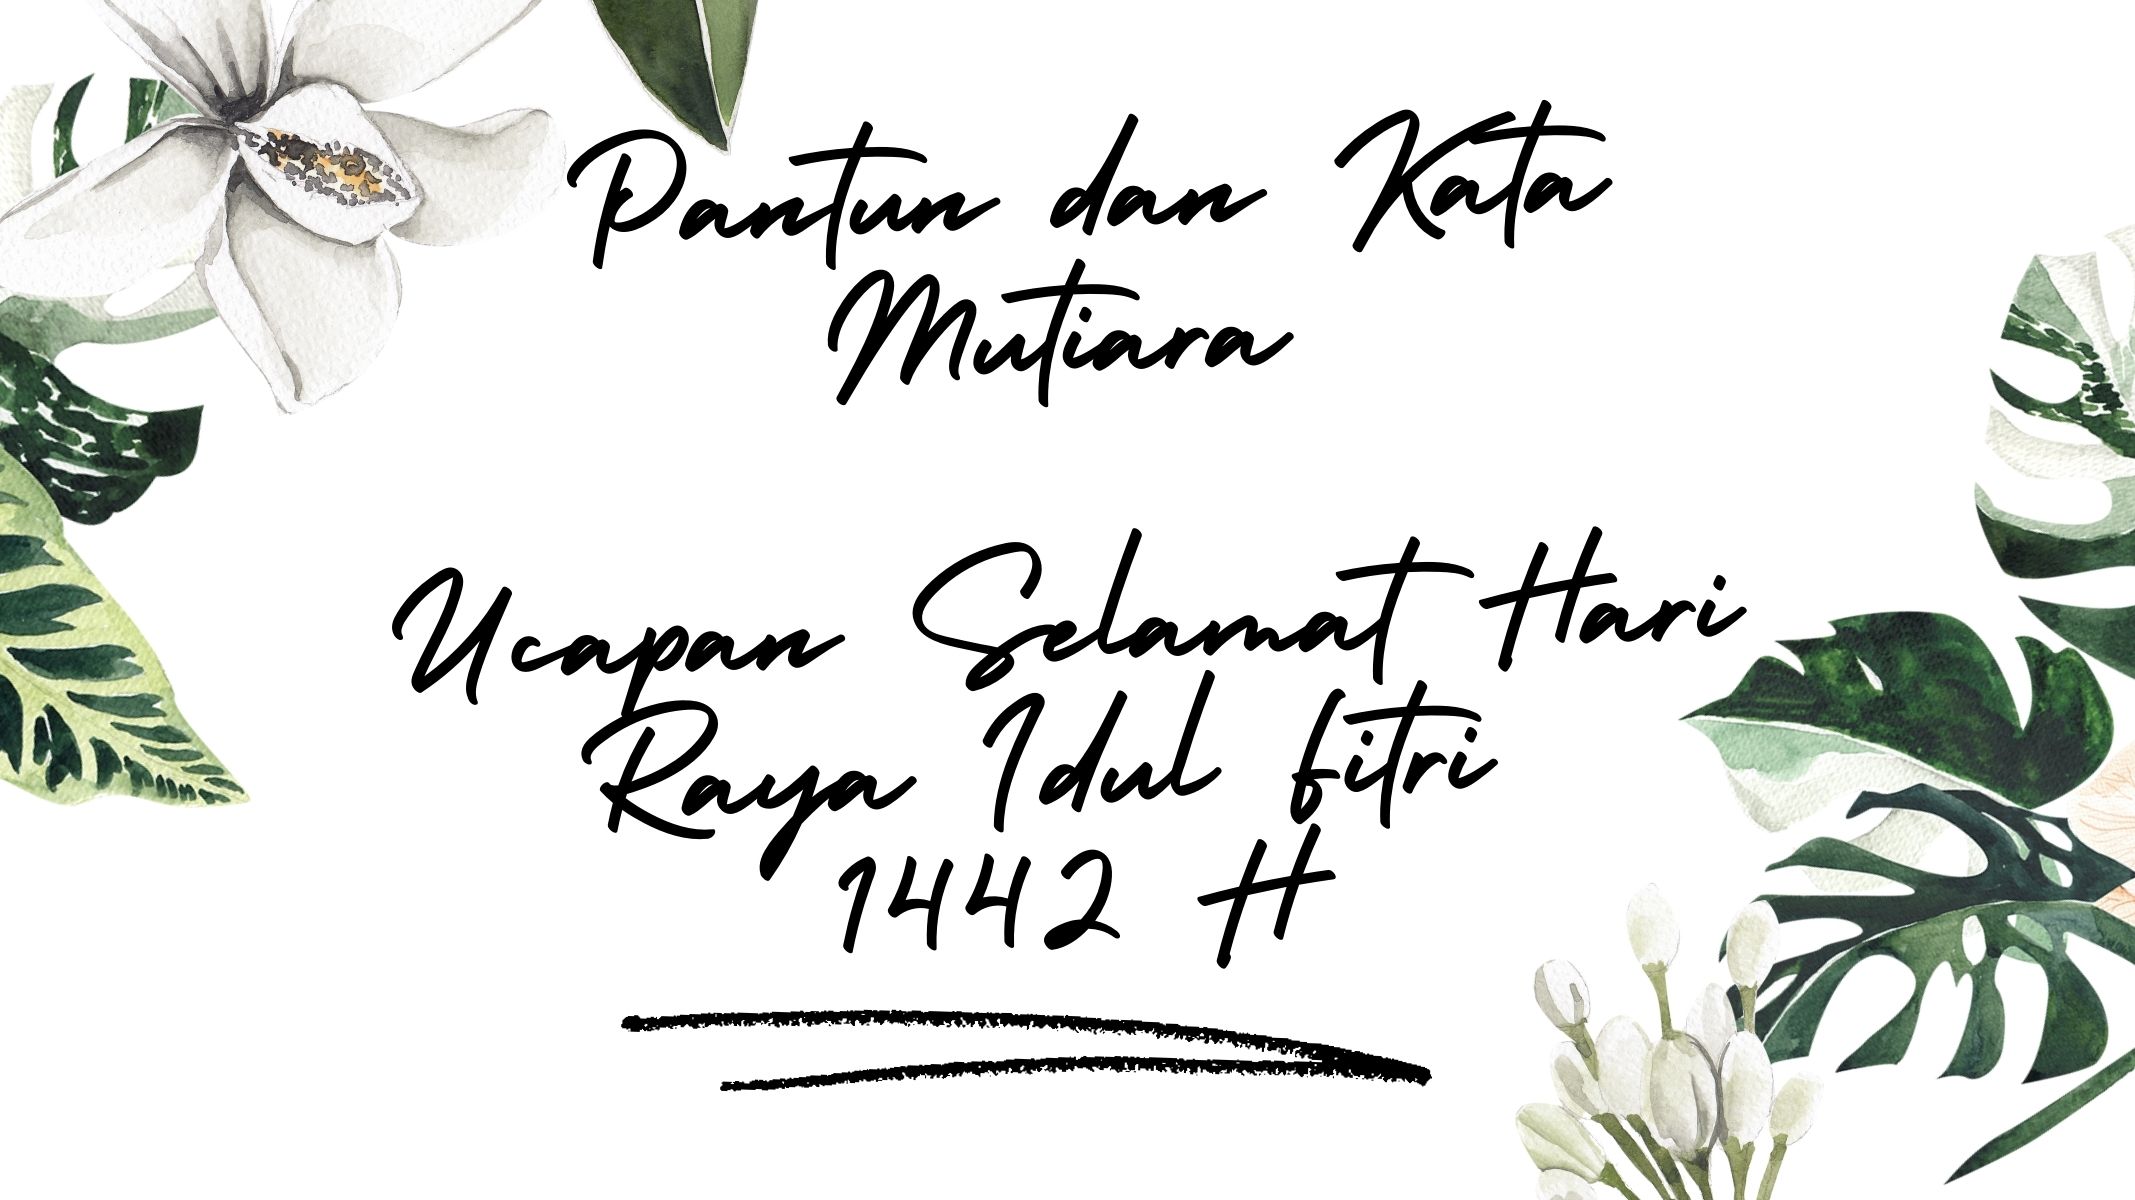 Pantun dan Kata
Mutiara
Ucapan Selamat Hari
Raya Idul fitri
1442 H